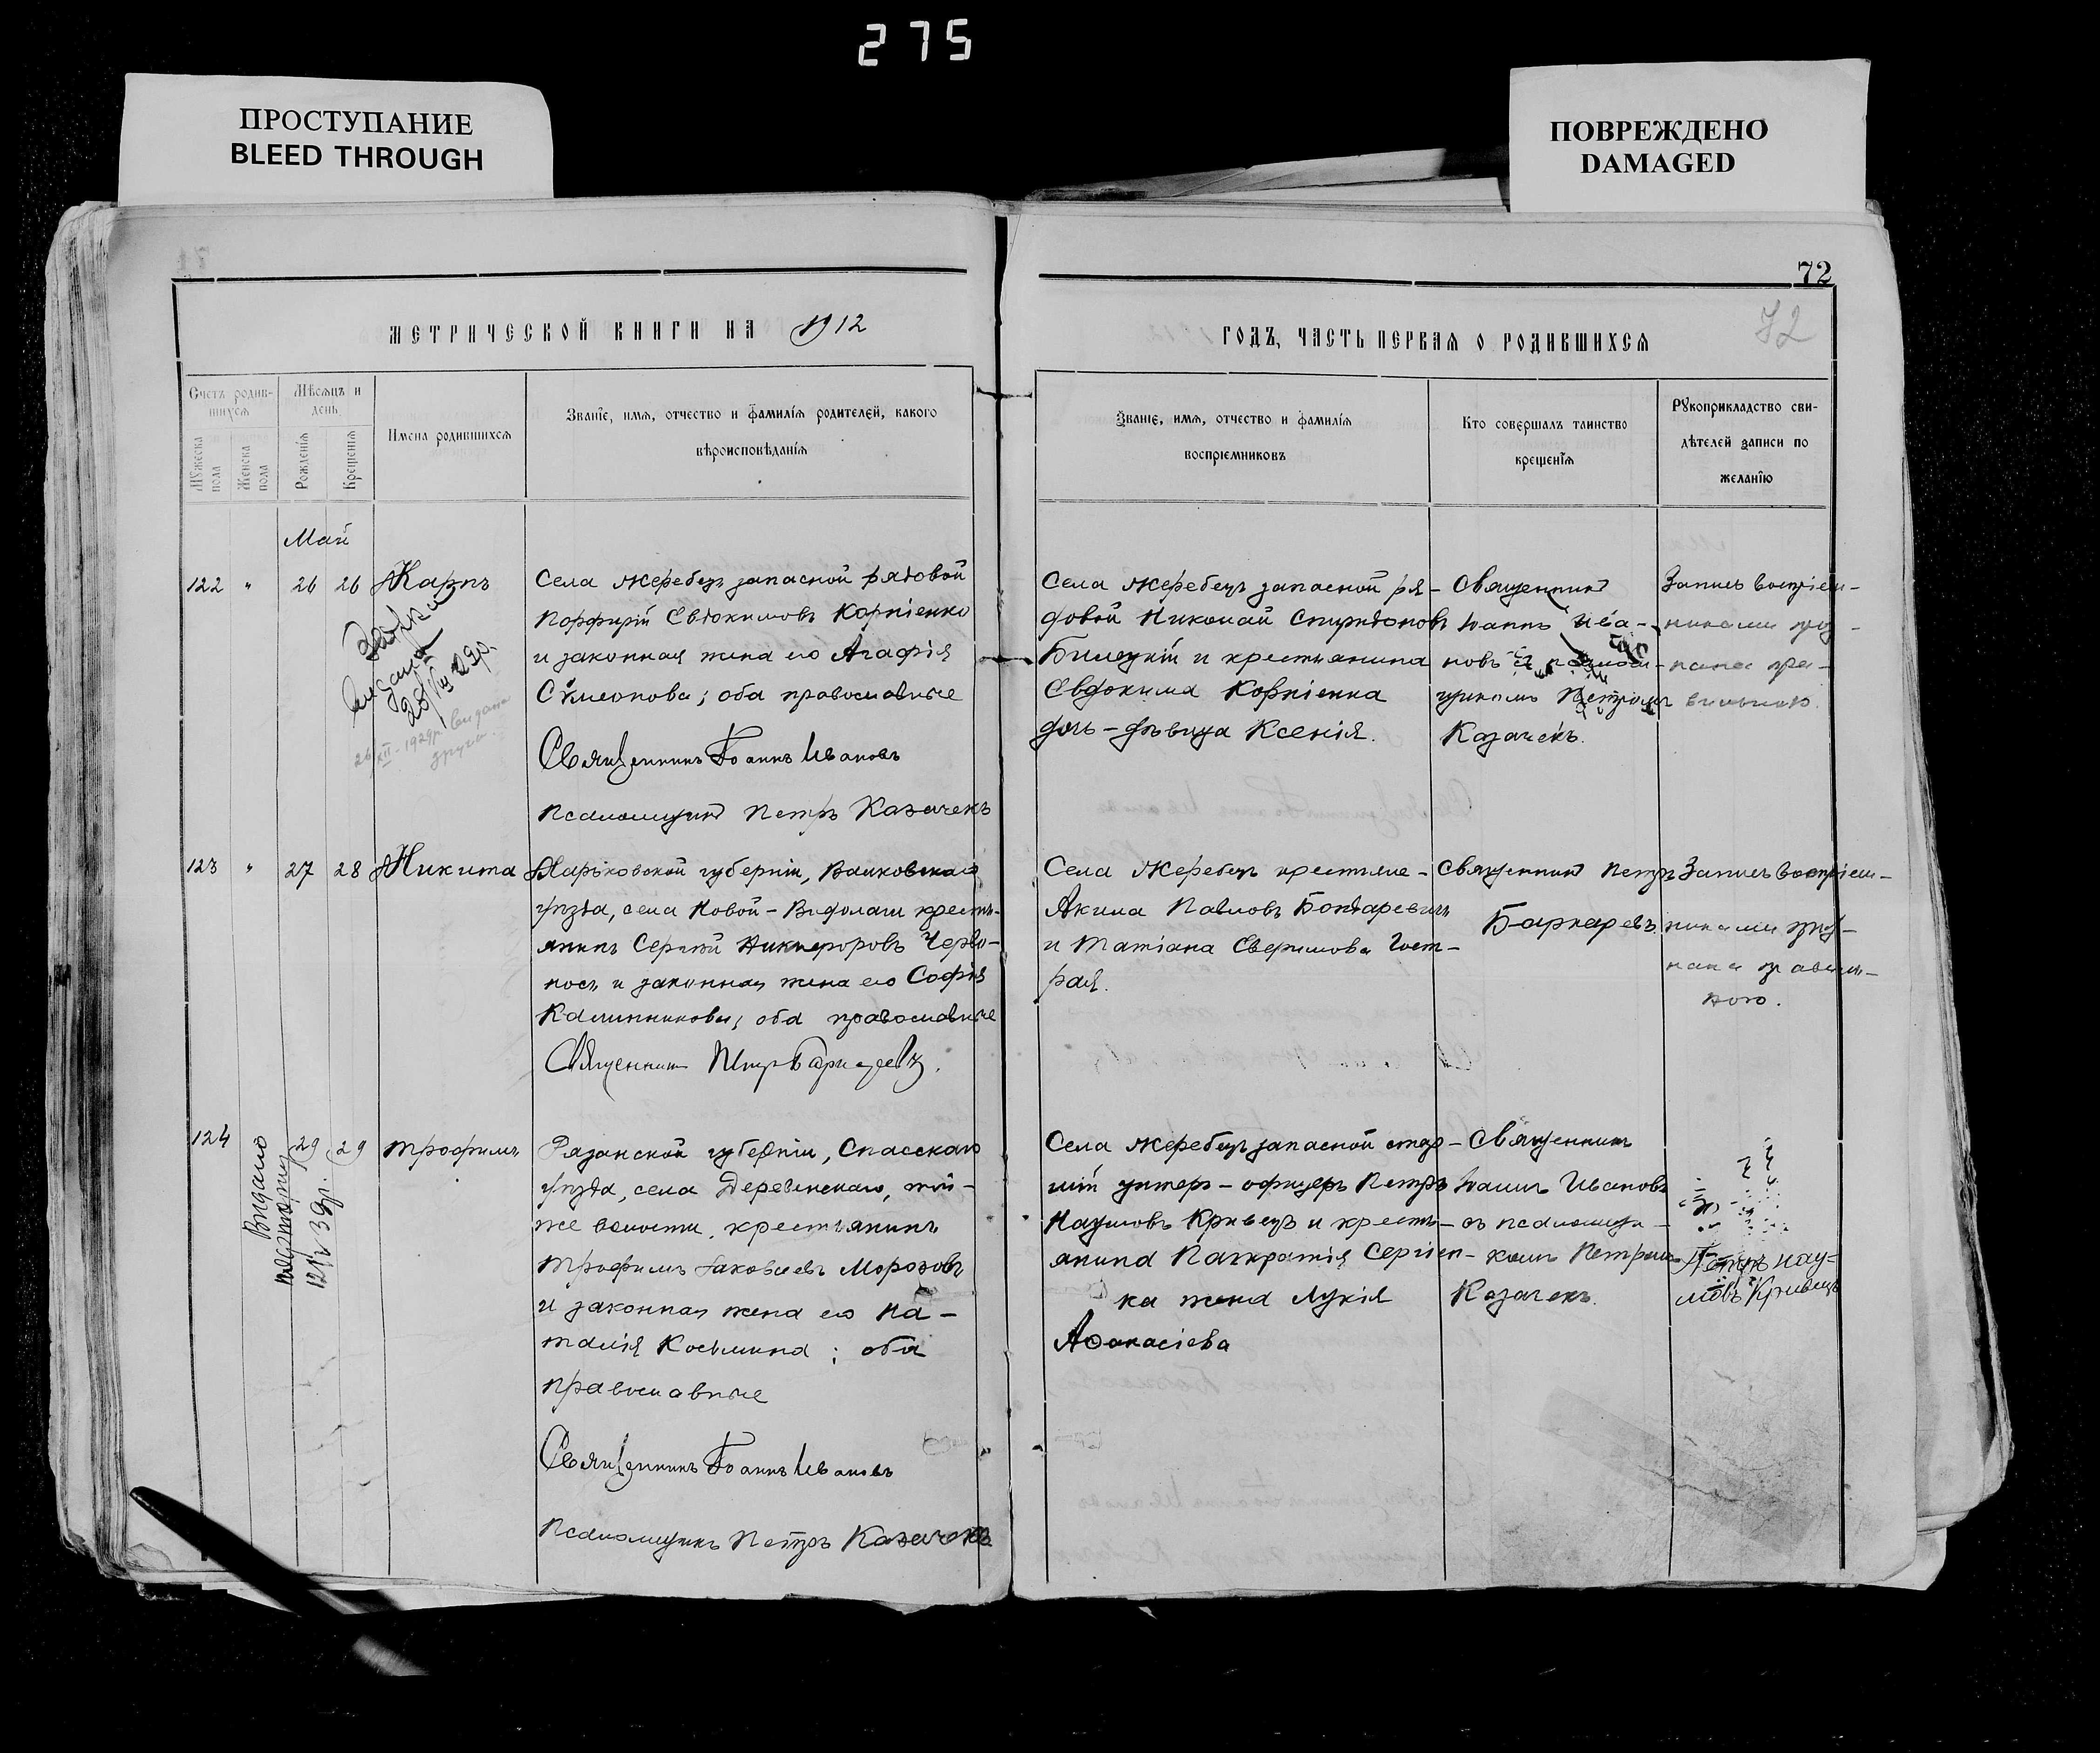 275
ПРОСТУПАНИЕ
BLEED THROUGH
ПОВРЕЖДЕНО
DAMAGED
72
72
МЕТРИЧЕСКОЙ КНИГИ НА 1912
ГОДЪ, ЧАСТЬ ПЕРВАЯ О РОДИВШИХСЯ
Счетъ родив-
шихся
Мужеска
пола
Женска
пола
Мѣсяцъ и
день
Рожденія
Крещенія
Имена родившихся
Званіе, имя, отчество и фамилія родителей, какого
вѣроисповѣданія
Званіе, имя, отчество и фамилія
воспріемниковъ
Кто совершалъ таинство
крещенія
Рукоприкладство сви-
дѣтелей записи по
желанію
Май
122 " 26 26 Карпъ
выдана
26/XII-1929р. выдана
друга
Села Жеребецъ запасной рядовой
Порфирій Евдокимовъ Корніенко
и законная жена его Агафія
Симеонова; оба православные
Священникъ Іоаннъ Ивановъ
Псаломщикъ Петръ Казачекъ
Села Жеребецъ запасной ря-
довой Николай Спиридоновъ
Билецкій и крестьянина
Евдокима Корніенка
дочь-дѣвица Ксенія.
Священникъ
Іоаннъ Ива-
новъ съ псалом-
щикомъ Петромъ
Казачекъ.
Запись воспріем-
никами приз-
нана пра-
вильною.
123 " 27 28 Никита
Харьковской губерніи, Валковскаго
уѣзда, села Новой-Водолаги кресть-
янинъ Сергѣй Никифоровъ Черво-
носъ и законная жена его Софія
Калинникова; оба православные
Священникъ Петръ
Села Жеребецъ крестьяне-
Акила Павловъ Бондаревичъ
и Татіана Северинова Гост-
рая.
Священникъ Петръ
Запись воспріем-
никами приз-
нана правиль-
ною.
124 29 29 Трофимъ
Видано
Рязанской губерніи, Спасскаго
уѣзда, села Деревенскаго, той-
же волости, крестьянинъ
Трофимъ Іаковлевъ Морозовъ
и законная жена его На-
талія Косьмина; оба
православные
Священникъ Іоаннъ Ивановъ
Псаломщикъ Петръ Казачекъ
Села Жеребецъ запасной стар-
шій унтеръ-офицеръ Петръ
Наумовъ Кривецъ и кресть-
янина Панкратія Сергіен-
ка жена Лукія
Аѳанасіева
Священникъ
Іоаннъ Ивановъ
съ псаломщи-
комъ Петромъ
Казачекъ.
Петръ Нау-
мовъ Кривецъ